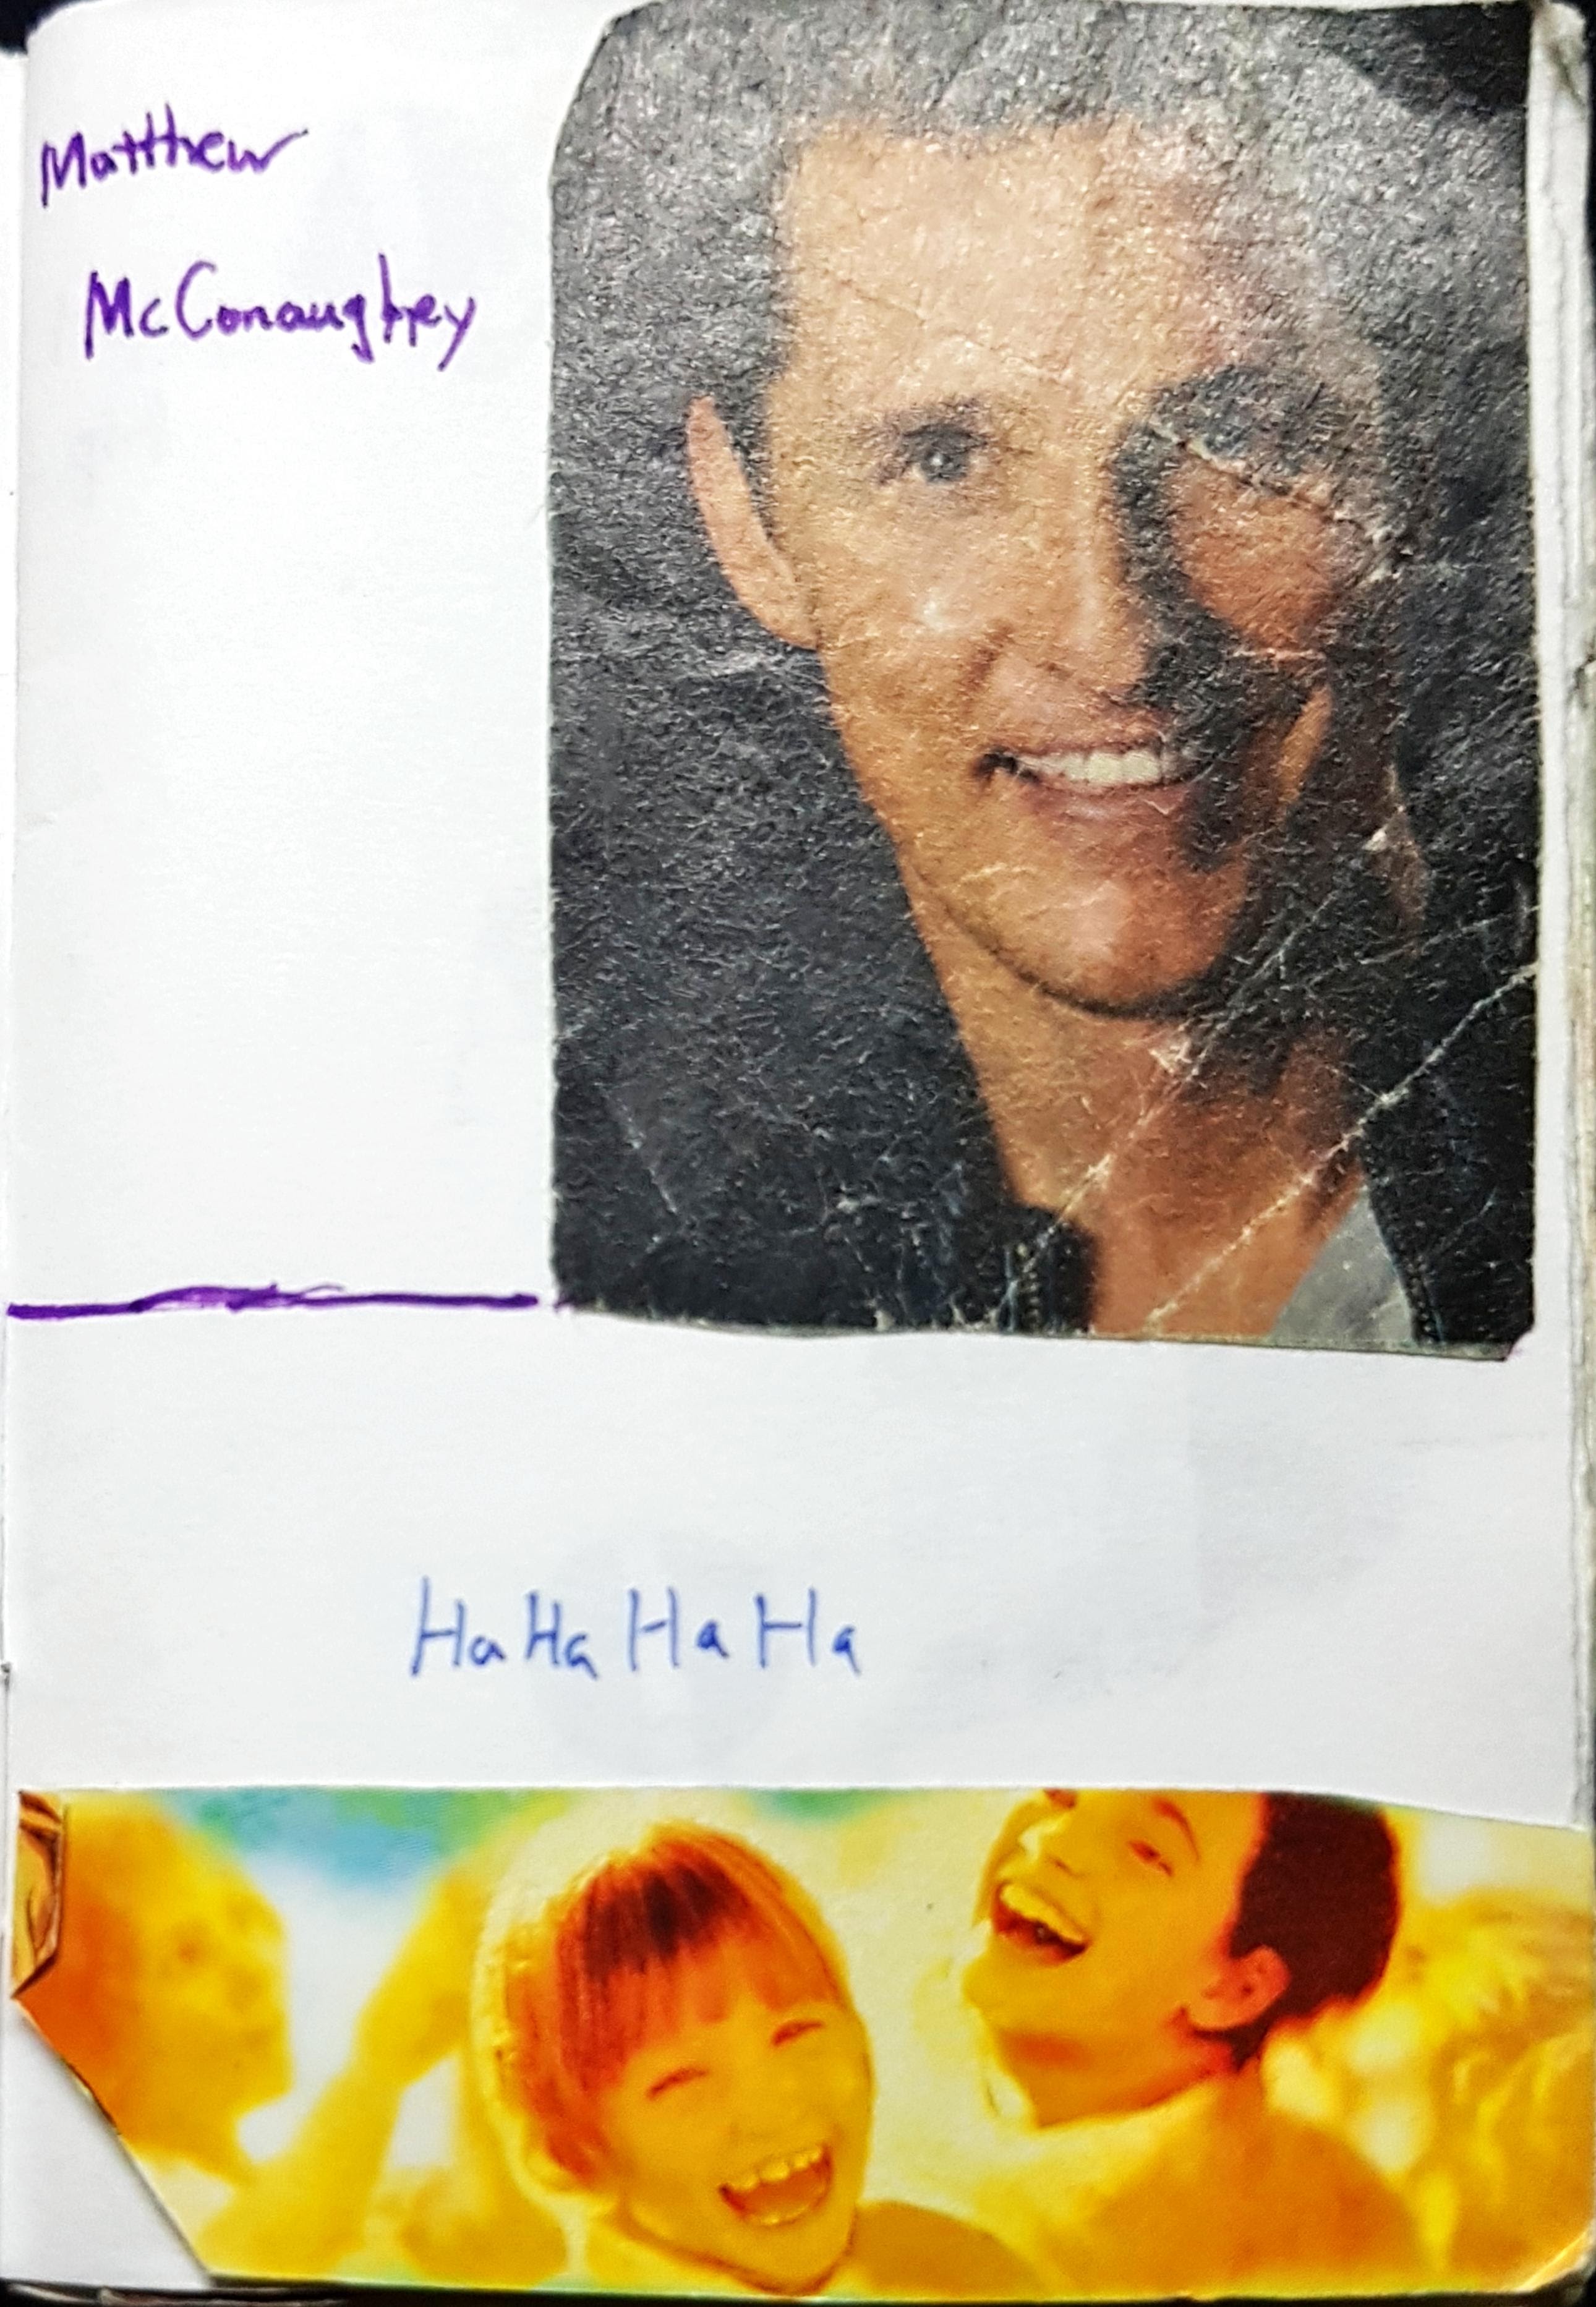 Matthew
McConaughey
HaHaHaHa